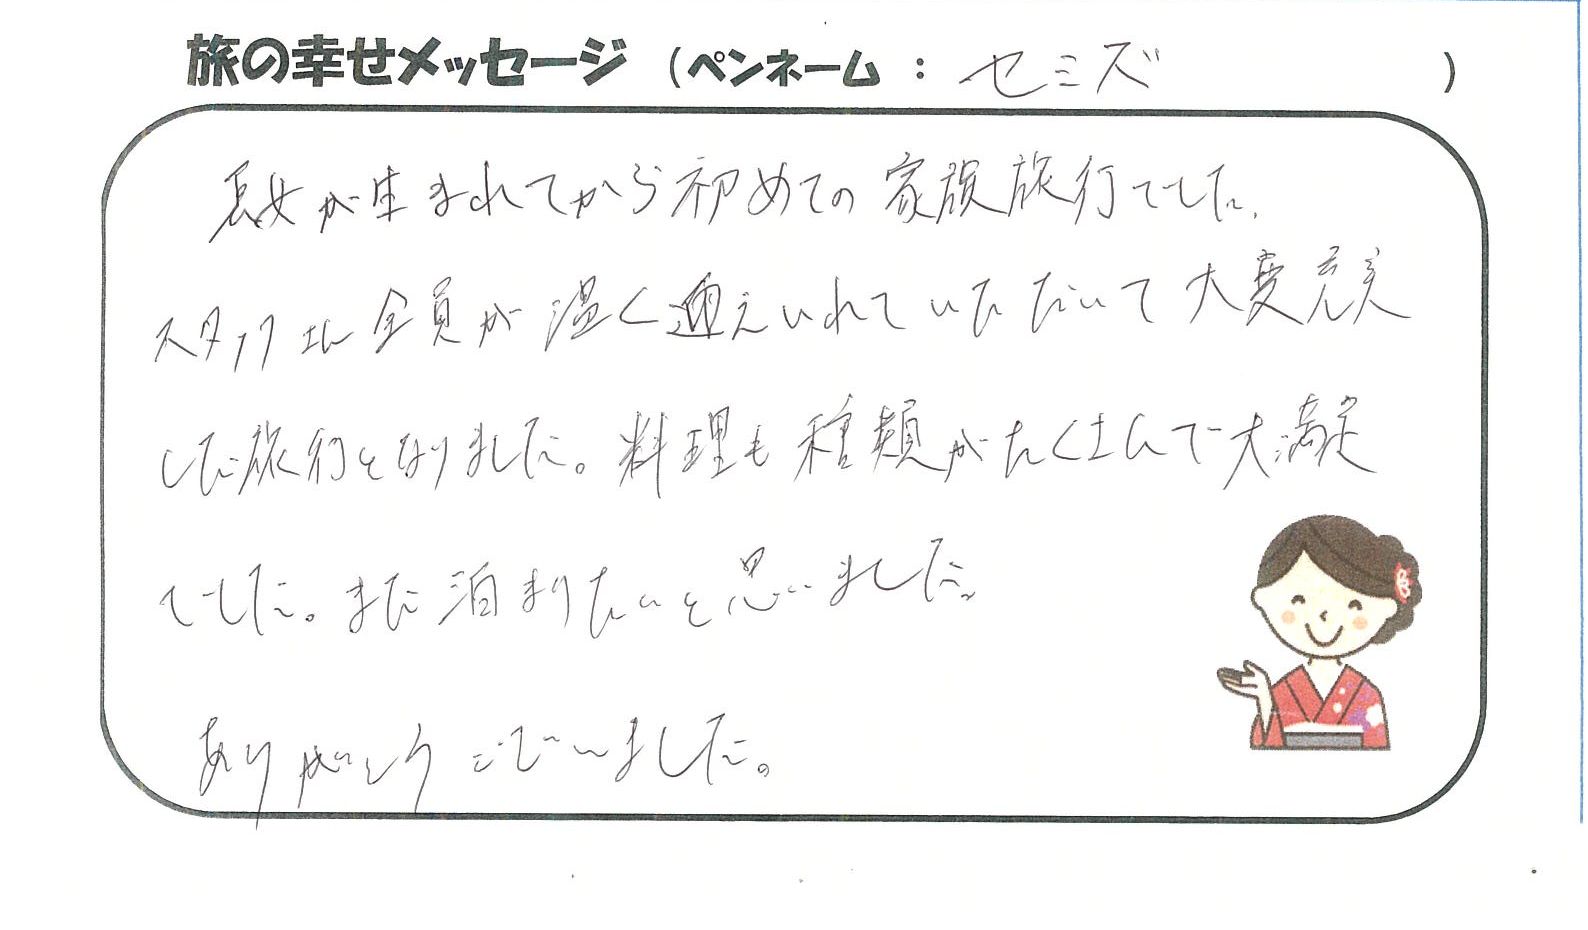 旅の幸せメッセージ （ペンネーム ： セミズ ）
長女が生まれてから初めての家族旅行でした。
スタッフさん全員が温く迎えいれていただいて大変充実
した旅行となりました。料理も種類がたくさんで大満足
でした。また泊まりたいと思いました。
ありがとうございました。